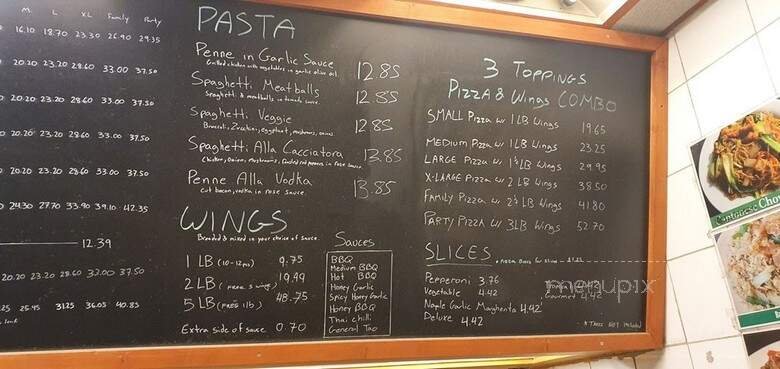 M L XL Family Party
16.10 18.70 23.30 26.90 29.35
20.20 23.20 28.60 33.00 37.50
20.20 23.20 28.60 33.00 37.50
20.20 23.20 28.60 33.00 37.50
20.20 23.20 28.60 33.00 37.50
24.30 27.70 33.90 39.10 42.35
12.39
20.20 23.20 28.60 33.00 37.50
25.95 31.25 36.05 40.85
PASTA
Penne in Garlic Sauce 12.85
Grilled chicken with vegetables in garlic olive oil.
Spaghetti Meatballs 12.85
Spaghetti & meatballs in tomato sauce.
Spaghetti Veggie 12.85
Broccoli, Zucchini, eggplant, mushrooms, onions
Spaghetti Alla Cacciatora 13.85
Chicken, Onions, mushrooms, red peppers in rose sauce.
Penne Alla Vodka 13.85
Cut bacon, vodka in rose sauce.
WINGS
Breaded & mixed in your choice of sauce.
1 LB (10-12pc) 9.75
2 LB (FREE 5 wings) 19.49
5 LB (FREE 1lb) 48.75
Extra side of sauce 0.70
Sauces
BBQ
Medium BBQ
Hot BBQ
Honey Garlic
Spicy Honey Garlic
Honey BBQ
Thai chilli
General Tao
3 TOPPINGS
PIZZA & Wings COMBO
SMALL Pizza w/ 1 LB Wings 19.65
MEDIUM Pizza w/ 1 LB Wings 23.25
LARGE Pizza w/ 1½ LB Wings 29.95
X-LARGE Pizza w/ 2 LB Wings 38.50
FAMILY Pizza w/ 2½ LB Wings 41.80
PARTY Pizza w/ 3LB Wings 52.70
SLICES
Pepperoni 3.76
Vegetable 4.42
Gourmet 4.42
Naple Garlic Margherita 4.42
Deluxe 4.42
* Taxes Not Included
menupix
Cantonese Chow